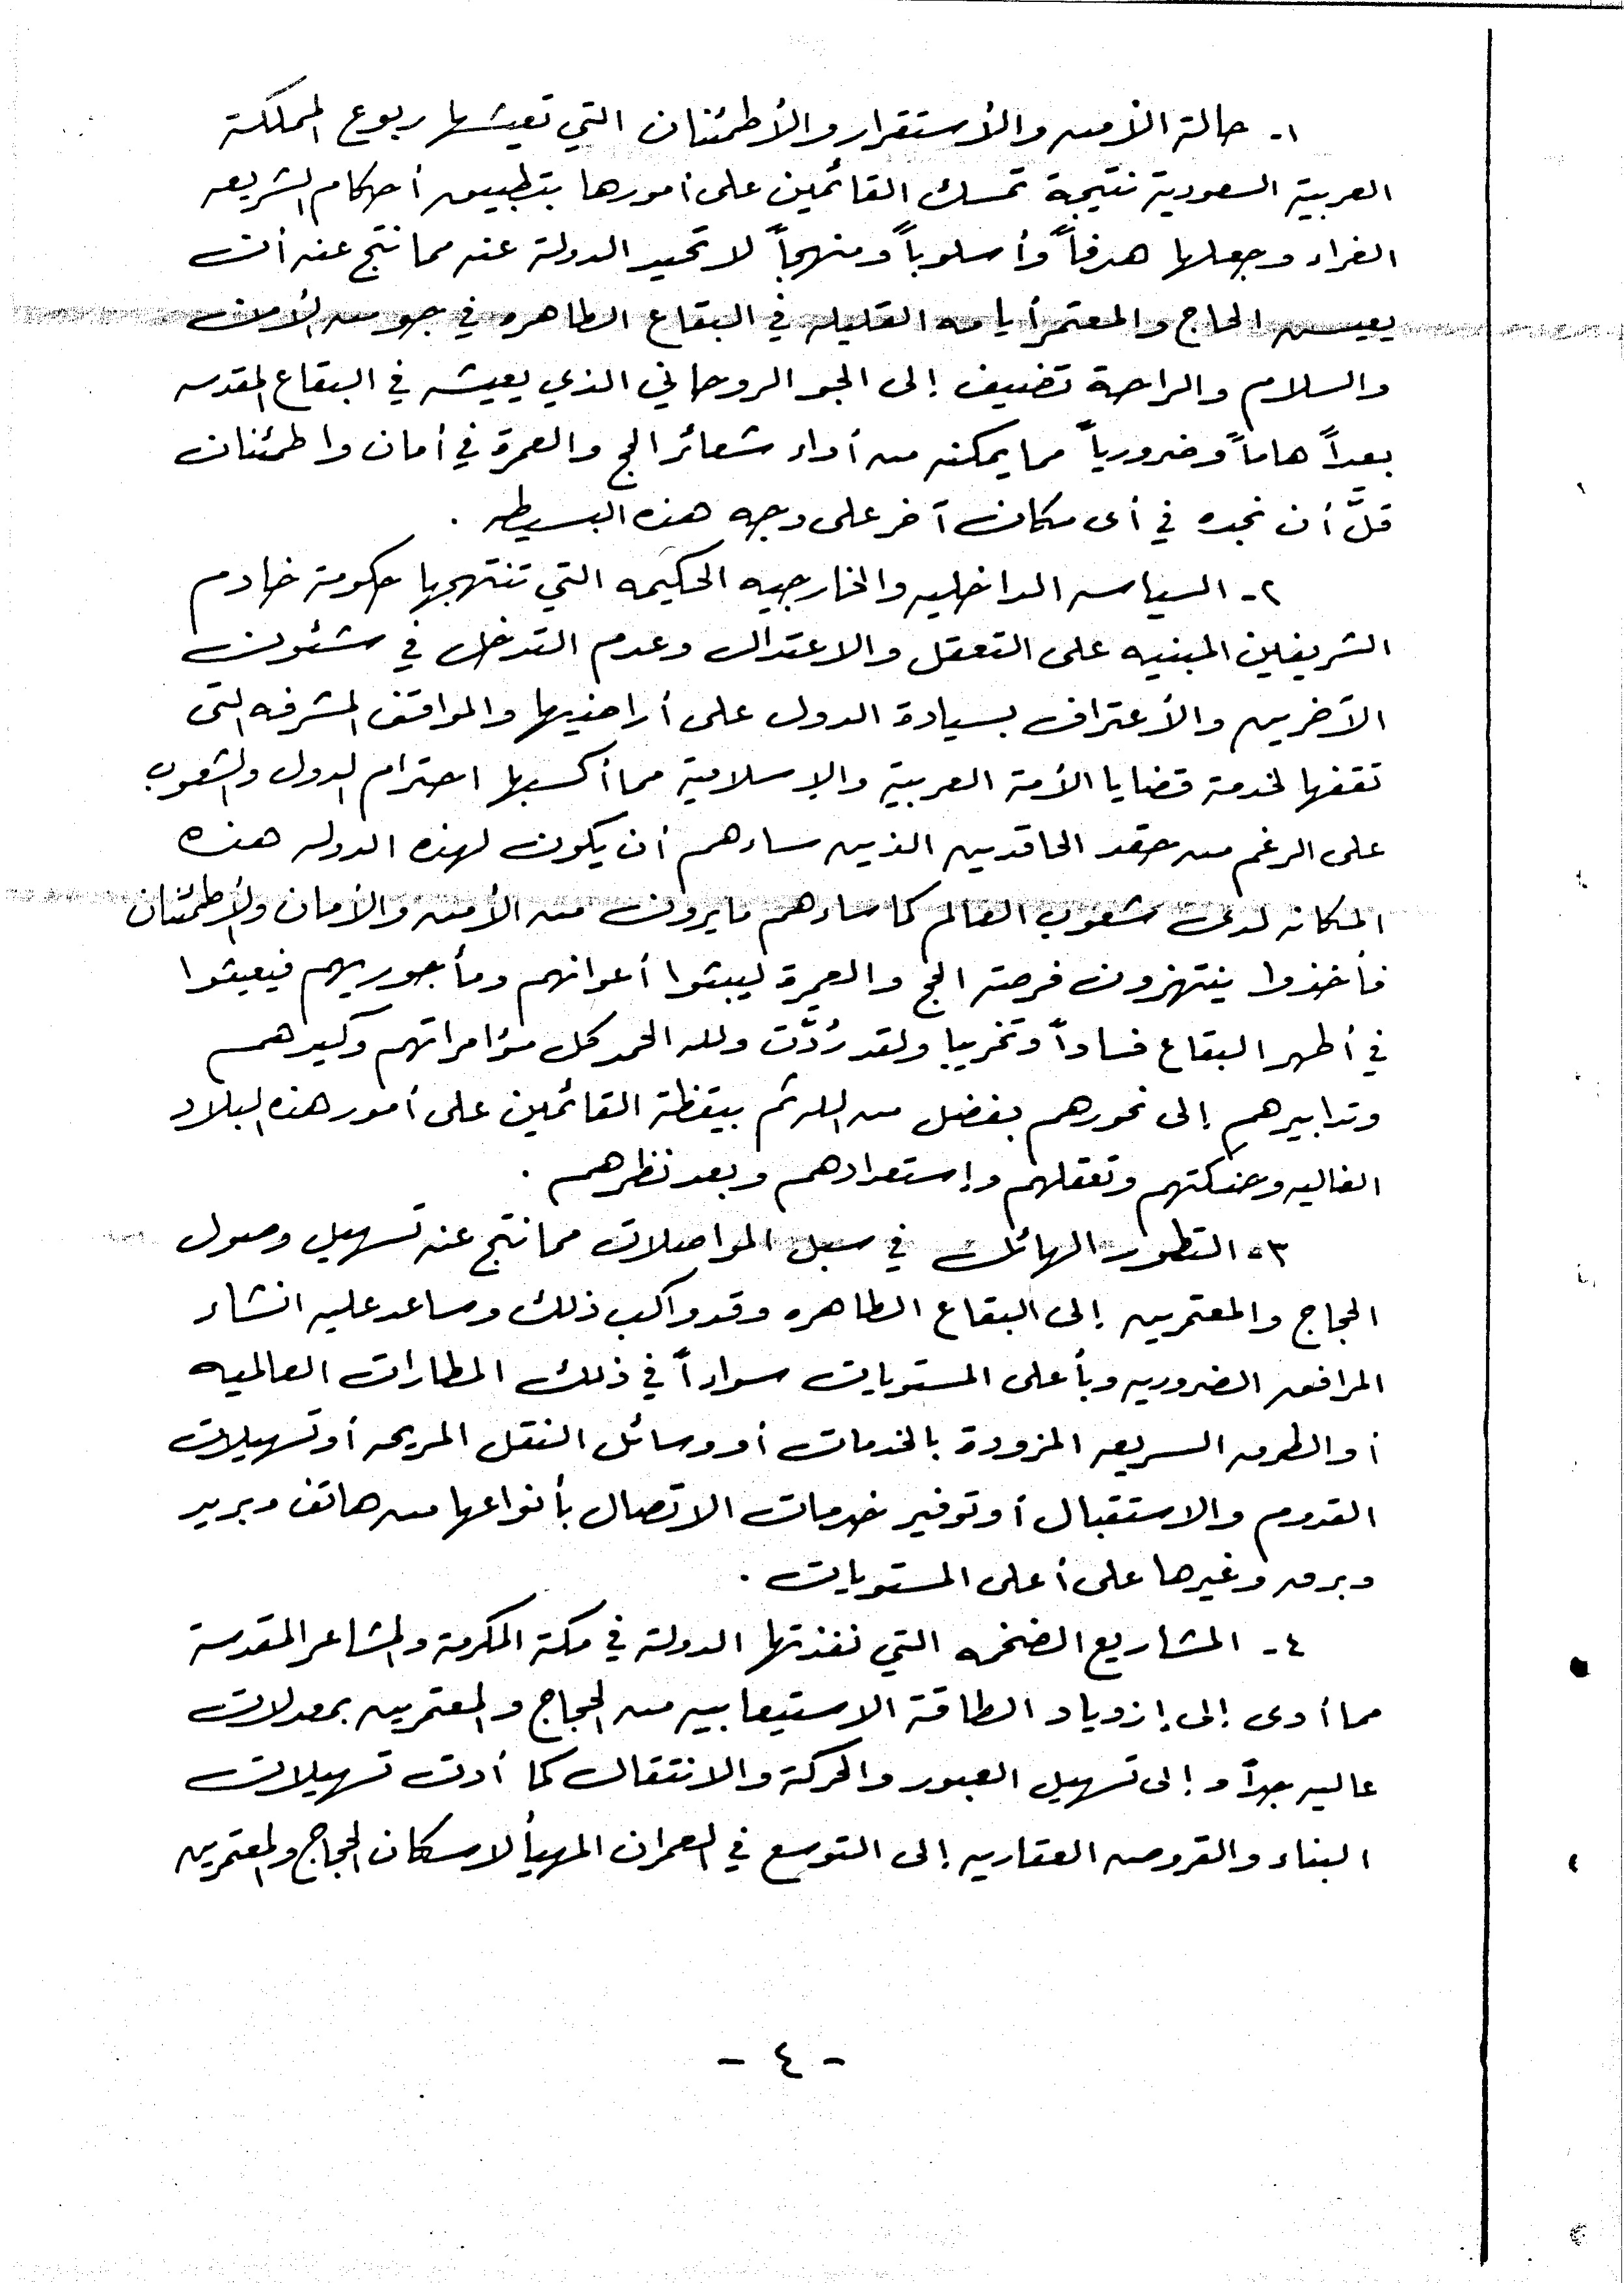 ١- حالة الأمن والأستقرار والأطمئنان التي تعيشها ربوع المملكة
العربية السعودية نتيجة تمسك القائمين على أمورها بتطبيق أحكام الشريعه
الغراء وجعلها هدفاً وأسلوباً ومنهجاً لا تحيد الدولة عنه مما نتج عنه أن
يعيش الحاج والمعتمر أيامه القليله في البقاع الطاهره في جو من الأمن
والسلام والراحة تضيف إلى الجو الروحاني الذي يعيشه في البقاع المقدسه
بعداً هاماً وضرورياً مما يمكنه من أداء شعائر الحج والعمرة في أمان واطمئنان
قلَّ أن نجده في أى مكان آخر على وجه هذه البسيطه .
٢- السياسه الداخليه والخارجيه الحكيمه التي تنتهجها حكومة خادم
الشريفين المبنيه على التعقل والاعتدال وعدم التدخل في شئون
الآخرين والأعتراف بسيادة الدول على أراضيها والمواقف المشرفه التى
تقفها لخدمة قضايا الأمة العربية والإسلامية مما أكسبها احترام الدول والشعوب
على الرغم من حقد الحاقدين الذين ساءهم أن يكون لهذه الدوله هذه
المكانه لدى شعوب العالم كما ساءهم ما يرون من الأمن والأمان والأطمئنان
فأخذوا ينتهزون فرصة الحج والعمرة ليبثوا أعوانهم ومأجوريهم فيعيثوا
في أطهر البقاع فساداً وتخريبا ولقد رُدَّت ولله الحمد كل مؤامراتهم وكيدهم
وتدابيرهم إلى نحورهم بفضل من الله ثم بيقظة القائمين على أمور هذه البلاد
الغاليه وحنكتهم وتعقلهم وإستعدادهم وبعد نظرهم .
٣- التطور الهائل في سبل المواصلات مما نتج عنه تسهيل وصول
الحجاج والمعتمرين إلى البقاع الطاهره وقد واكب ذلك وساعد عليه انشاء
المرافق الضروريه وبأعلى المستويات سواءاً في ذلك المطارات العالميه
أو الطرق السريعه المزودة بالخدمات أو وسائل النقل المريحه أو تسهيلات
القدوم والاستقبال أو توفير خدمات الاتصال بأنواعها من هاتف وبريد
وبرق وغيرها على أعلى المستويات .
٤- المشاريع الضخمه التي نفذتها الدولة في مكة المكرمة والمشاعر المقدسة
مما أدى إلى إزدياد الطاقة الاستيعابيه من الحجاج والمعتمرين بمعدلات
عاليه جداً و إلى تسهيل العبور والحركة والانتقال كما أدت تسهيلات
البناء والقروض العقاريه إلى التوسع في العمران المهيأ لاسكان الحجاج والمعتمرين
- ٤ -